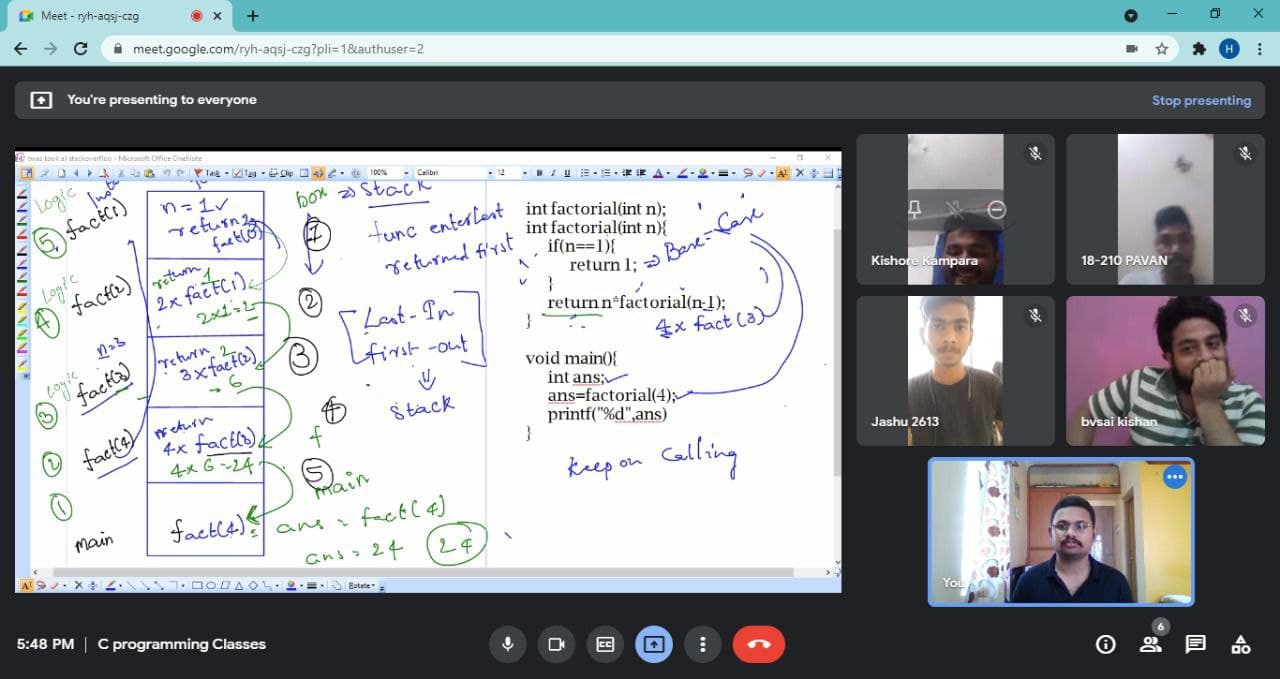 Meet - ryh-aqsj-czg
meet.google.com/ryh-aqsj-czg?pli=1&authuser=2
H
You're presenting to everyone
Stop presenting
- Microsoft Office OneNote
Task
Tag
Clip
100%
Calibri
12
B I U
Logic
5.
fact(1)
Logic
4
fact(2)
n=3
Logic
3
fact(3)
2
fact(4)
1
main
n = 1 ✓
return
return 1
2 x fact(1)
2x1=2
return 2
3 x fact(2)
= 6
return
4 x fact(3)
4 x 6 = 24
fact(4) =
box => Stack
1
func enter last
returned first
2
Last-In
first-out
3
stack
4
f
5
main
ans = fact(4)
ans = 24
24
int factorial(int n);
int factorial(int n){
if(n==1){
return 1; => Base-Case
}
return n*factorial(n-1);
}
4 x fact(3)
void main(){
int ans;
ans=factorial(4);
printf("%d",ans)
}
keep on calling
Rotate
Kishore Kampara
18-210 PAVAN
Jashu 2613
bvsai kishan
You
5:48 PM | C programming Classes
6